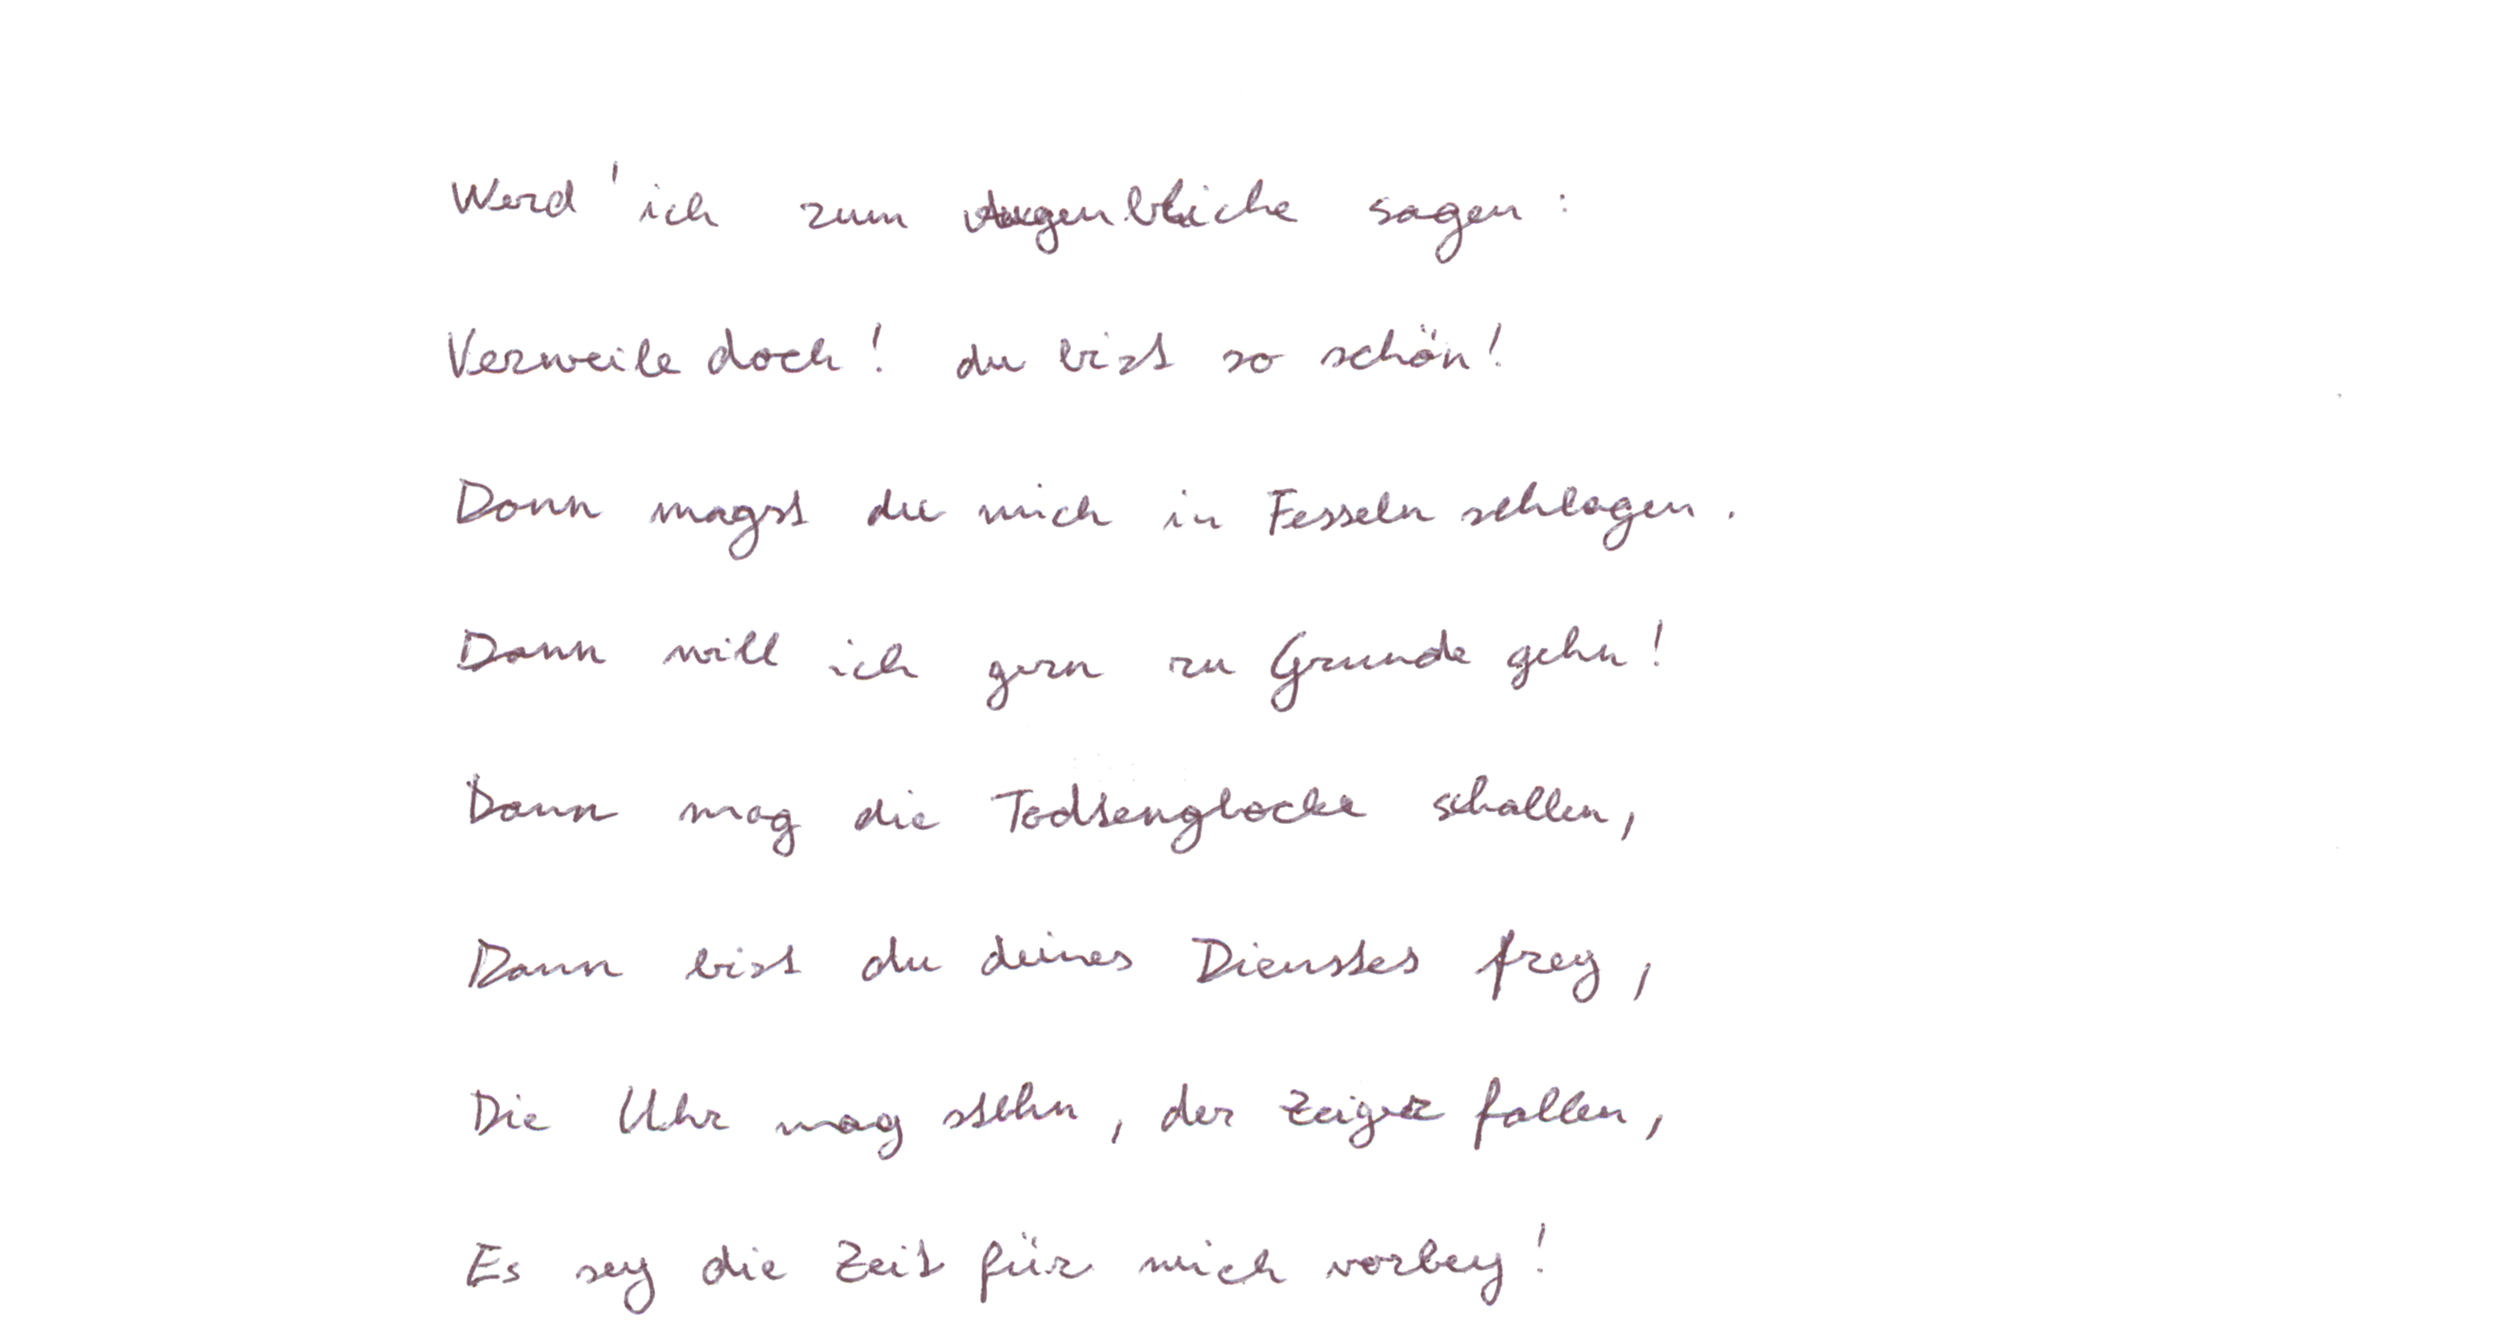 Werd' ich zum Augenblicke sagen:
Verweile doch! du bist so schön!
Dann magst du mich in Fesseln schlagen.
Dann will ich gern zu Grunde gehn!
Dann mag die Todtenglocke schallen,
Dann bist du deines Dienstes frey,
Die Uhr mag stehn, der Zeiger fallen,
Es sey die Zeit für mich vorbey!